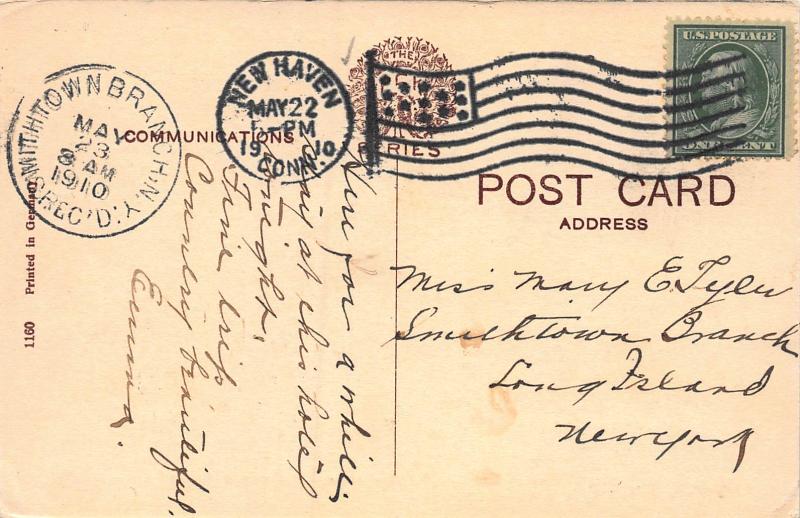 SMITHTOWN BRANCH, N.Y.
MAY
23
8 AM
1910
REC'D.
NEW HAVEN
MAY 22
PM
19 10
CONN.
THE
SERIES
U.S. POSTAGE
ONE CENT
COMMUNICATIONS
POST CARD
ADDRESS
Here for a while
at this hotel
tonight.
Fine trip
Country beautiful.
Emma.
Miss Mary E. Tyler
Smithtown Branch
Long Island
New York
1160 Printed in Germany